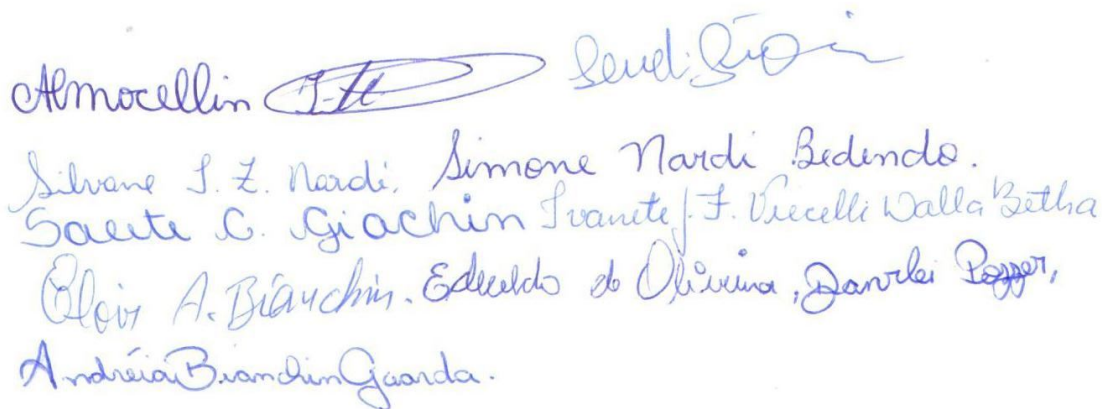 Almocellin
Silvane J. Z. Nardi. Simone Nardi Bedendo.
Salete C. Giachin Ivanete J. F. Viecelli Dalla Betha
Elois A. Bianchin. Eduardo de Oliveira, Danrlei Pozzer,
Andréia Bianchin Guarda.